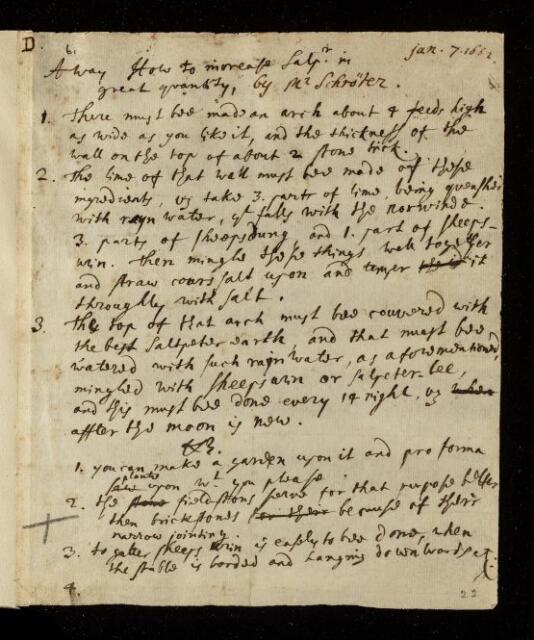 D. 6. Jan. 7. 166
A way How to increase Salpr in
great quantity, by Mr Schröter.
1. There must bee made an arch about 4 feeds high
as wide as you like it, and the thickness of the
wall on the top of about 2 stone tick.
2. The lime of that wall must bee made of these
ingredients, vz take 3. parts of lime being quenshed
with rayn water, yt falls with the norwinde.
3. parts of sheepsdung and 1. part of sheeps-
urin. then mingle these things well together
and straw cours salt upon and temper it
throughly with salt.
3. The top of that arch must bee couvered with
the best Saltpeter earth, and that must bee
watered with such rain water, as aforementioned,
mingled with sheeps urin or salpeter lee,
and this must bee done every 14 night, vz
affter the moon is new.
NB.
1. you can make a garden upon it and pro forma
plante
upon wt you please
2. the fieldstons serve for that purpose better
then brickstones because of their
narrow jointing.
3. to gatter sheeps urin is easely to bee done, when
the stable is borded and hanging downwords
4.
22